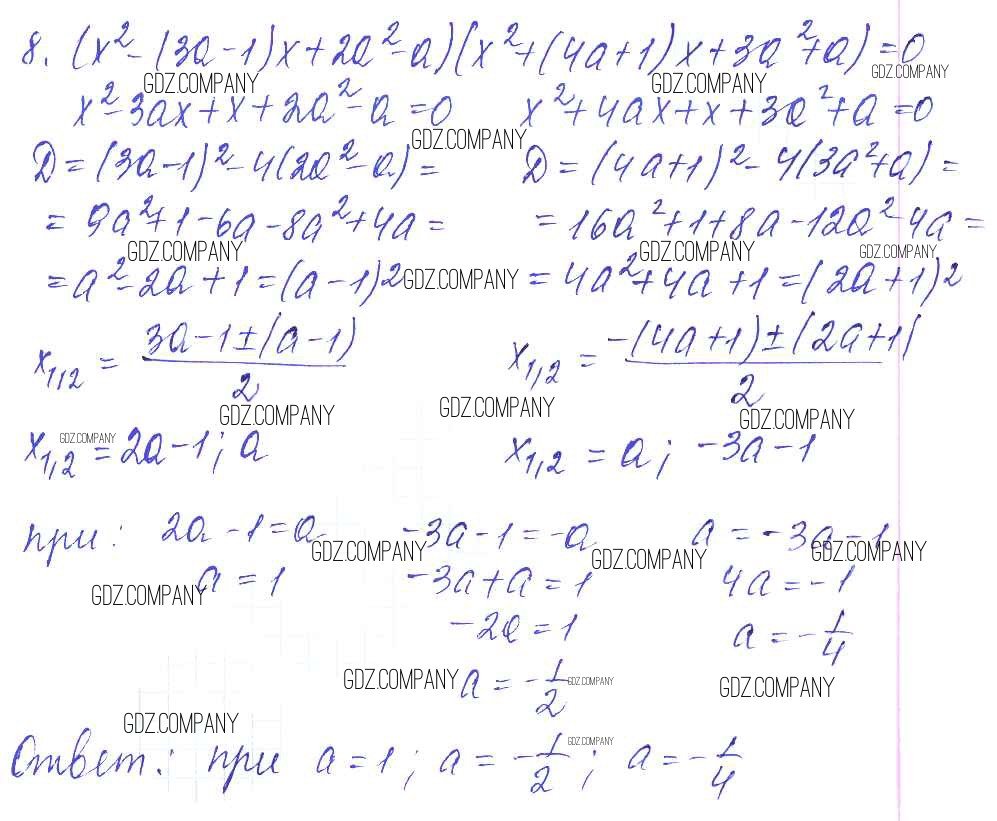 8. (x² - (3a - 1)x + 2a² - a)(x² + (4a + 1)x + 3a² + a) = 0
GDZ.COMPANY GDZ.COMPANY GDZ.COMPANY
x² - 3ax + x + 2a² - a = 0 x² + 4ax + x + 3a² + a = 0
GDZ.COMPANY
D = (3a - 1)² - 4(2a² - a) = D = (4a + 1)² - 4(3a² + a) =
= 9a² + 1 - 6a - 8a² + 4a = = 16a² + 1 + 8a - 12a² - 4a =
GDZ.COMPANY GDZ.COMPANY GDZ.COMPANY
= a² - 2a + 1 = (a - 1)² GDZ.COMPANY = 4a² + 4a + 1 = (2a + 1)²
x₁,₂ = (3a - 1 ± (a - 1))/2 x₁,₂ = (-(4a + 1) ± (2a + 1))/2
GDZ.COMPANY GDZ.COMPANY GDZ.COMPANY
GDZ.COMPANY
x₁,₂ = 2a - 1; a x₁,₂ = a; -3a - 1
при: 2a - 1 = a -3a - 1 = -a a = -3a - 1
GDZ.COMPANY GDZ.COMPANY GDZ.COMPANY
a = 1 -3a + a = 1 4a = -1
GDZ.COMPANY
-2a = 1 a = -1/4
GDZ.COMPANY a = -1/2 GDZ.COMPANY GDZ.COMPANY
GDZ.COMPANY GDZ.COMPANY
Ответ: при a = 1; a = -1/2; a = -1/4